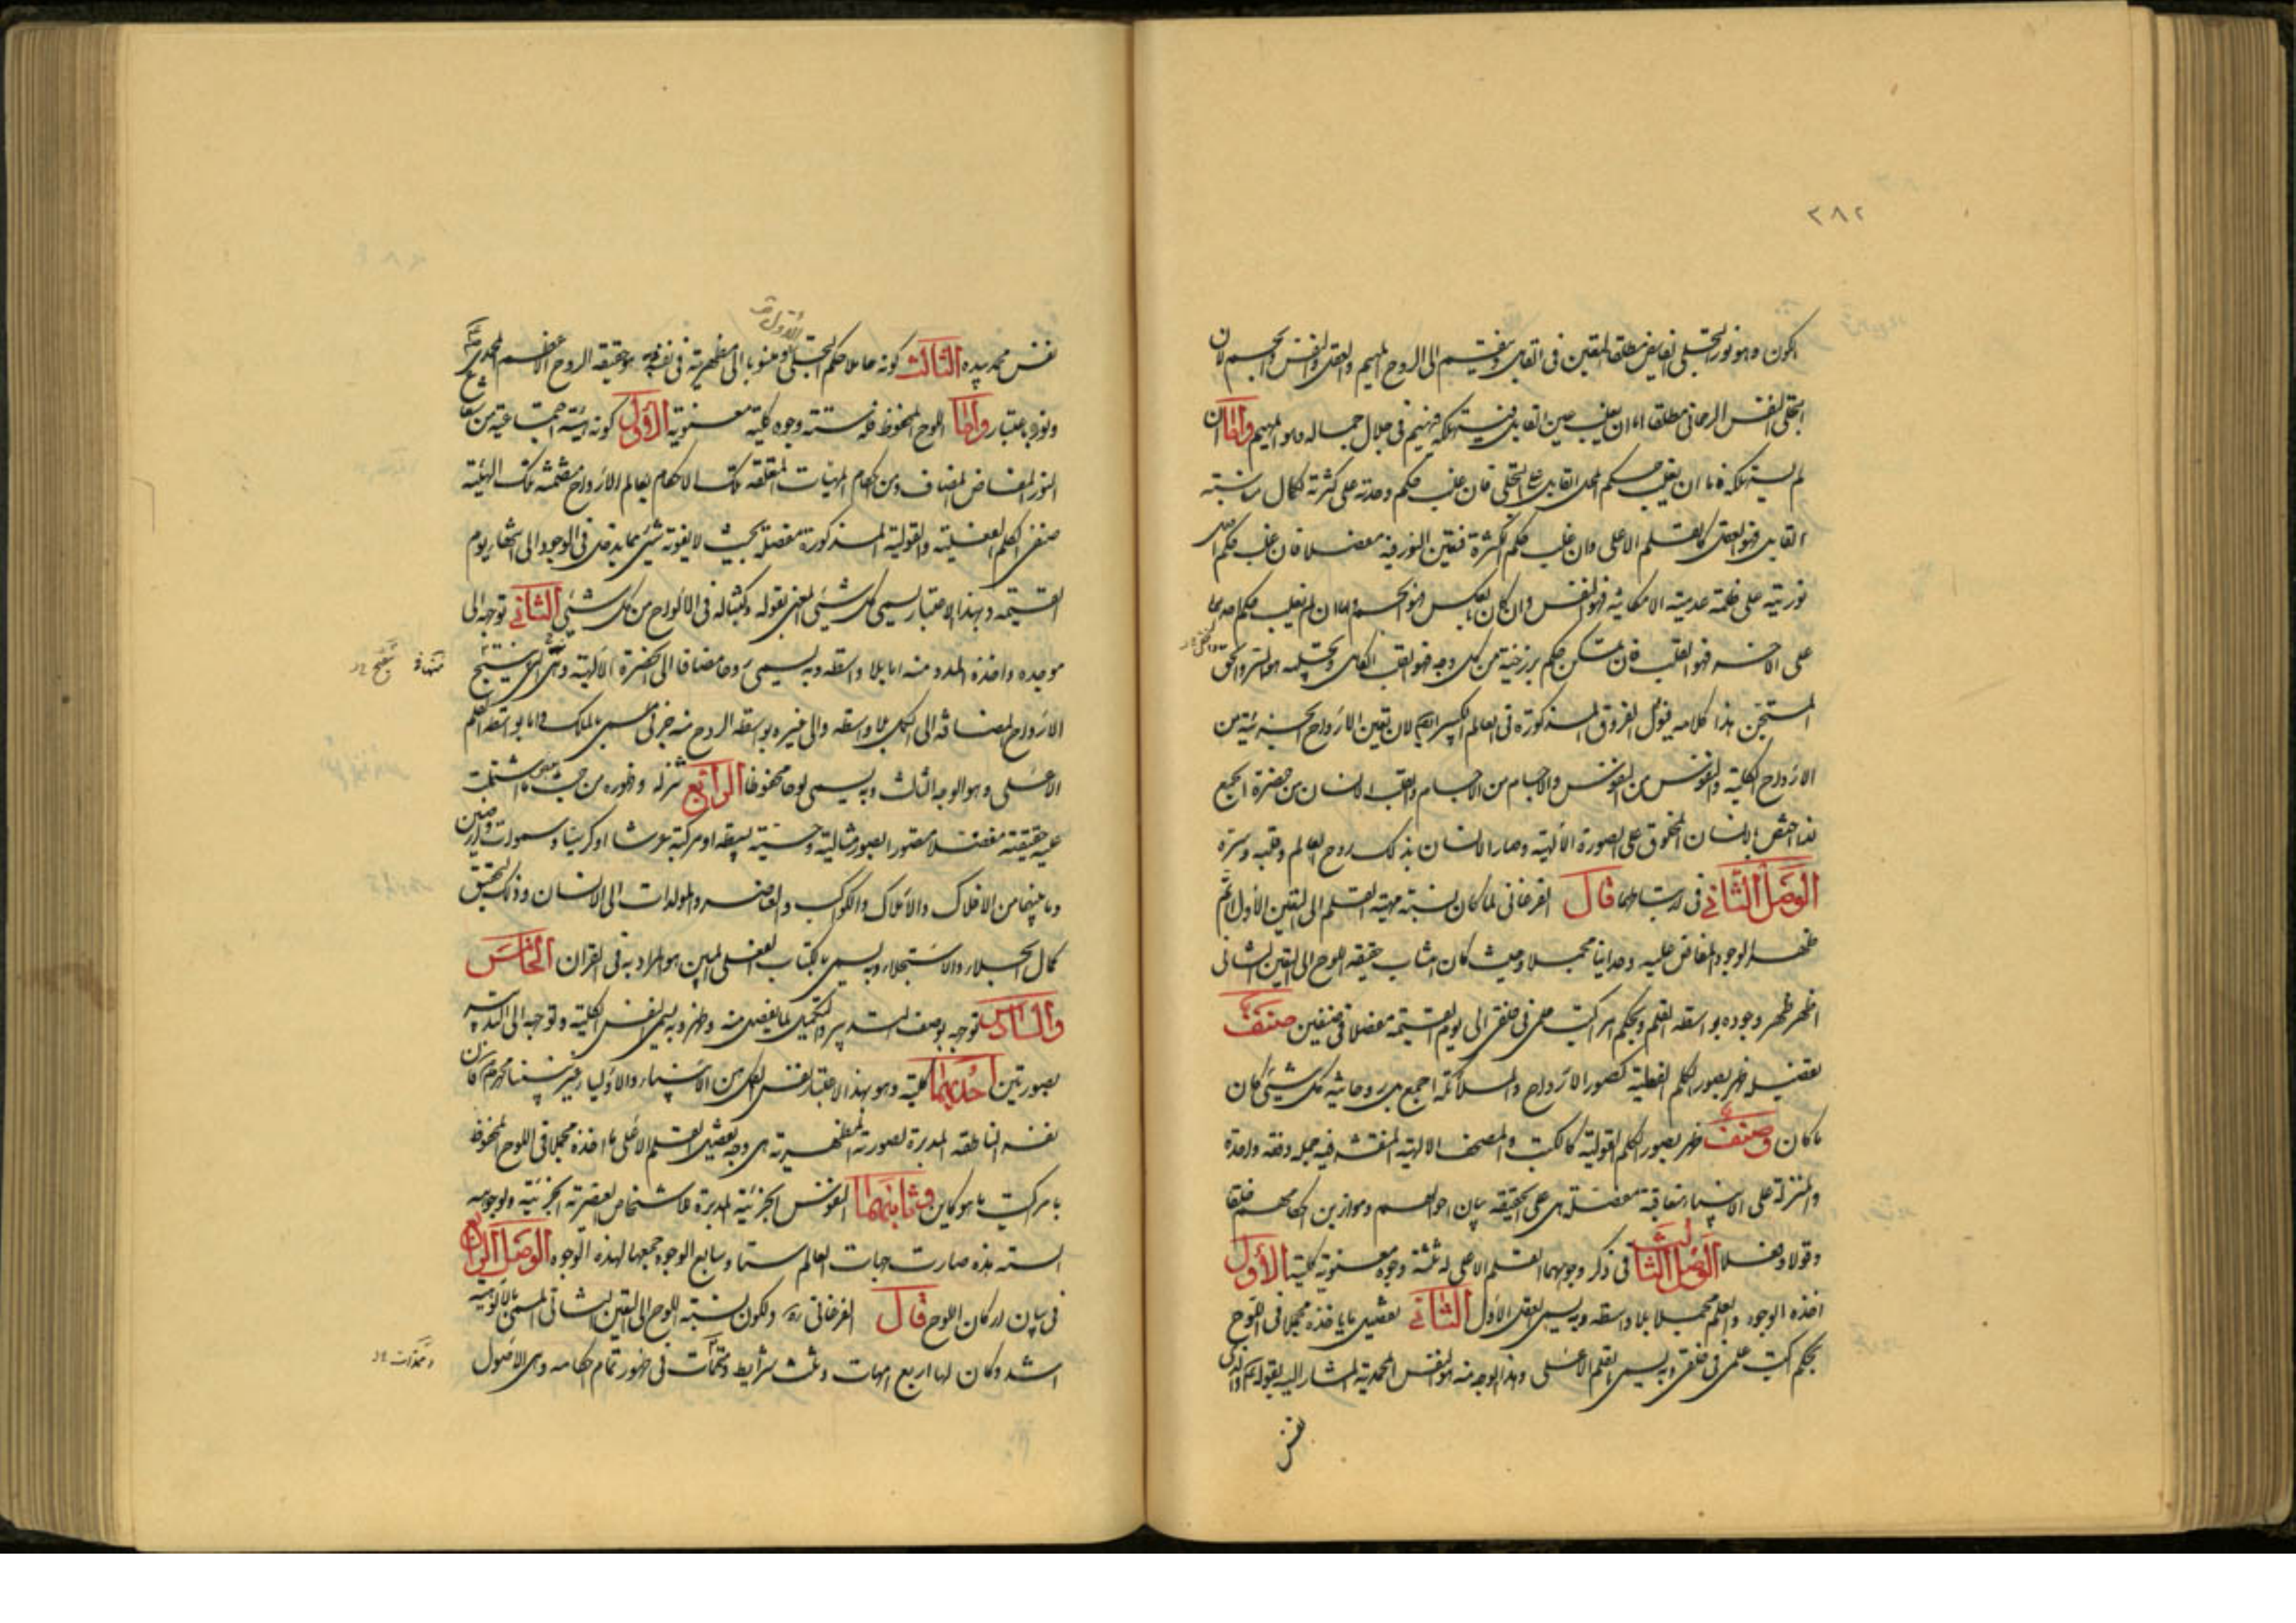 ٢٨٢
الكون وهو نور التجلى الفايض مطلقا المتعين فى القابل وينقسم الى الروح المهيم والعقل والنفس والجسم لان
التجلى النفس الرحمانى مطلقا اما ان يغلب عين القابل فيستهلكه فيهيم فى جلال جماله وهو المهيم واما ان
لم يستهلكه فاما ان يغلب حكم المحل القابل على التجلى فان غلب حكم وحدته على كثرته لكمال مناسبته
القابل فهو العقل كالقلم الاعلى وان غلب حكم الكثرة فتعين النور فيه مفصلا فان غلب حكم
نوريته على ظلمة عدميته الامكانية فهو النفس وان كان بالعكس فهو الجسم واما ان لم يغلب حكم احدهما
على الآخر فهو القلب فان تمكن حكم برزخيته من كل وجه فهو القلب الكامل وتجليه هو السر والحق
المستجن هذا كلامه فنقول الفروق المذكورة فى العالم الكبير لان تعين الارواح الجزئية من
الارواح الكلية والنفوس من النفوس والاجسام من الاجسام والقلب الانسان من حضرة الجمع
لذا اختص بالانسان المخلوق على الصورة الالهية وصار الانسان بذلك روح العالم وقلبه وسره
الوصل الثانى فى ارتباطهما قال الفرغانى لما كان نسبة مهية القلم الى التعين الاول اتم
ظهر الوجود المفاض عليه وحدانيا مجملا وحيث كان انتساب حقيقة اللوح الى التعين الثانى
اظهر ظهر وجوده بواسطة القلم وبحكم امر اكتب علمى فى خلقى الى يوم القيمة مفصلا فى صنفين صنف
تفصيله ظهر بصور الكلم الفعلية كصور الارواح والملائكة اجمع بل روحانية كل شئ كان
ما كان وصنف ظهر بصور الكلم القولية كالكتب والصحف الالهية المنتقشة فيه جملة دفعة واحدة
والمنزلة على الانبياء متعاقبة مفصلة هى على الحقيقة بيان احوالهم وموازين احكامهم خلقا
وقولا وفعلا الوصل الثالث فى ذكر وجوههما القلم الاعلى له ثلثة وجوه معنوية كلية الاول
اخذه الوجود والعلم مجملا بلا واسطة وبه يسمى العقل الاول الثانى تفصيل ما ياخذه مجملا فى اللوح
بحكم اكتب علمى فى خلقى وبه يسمى القلم الاعلى وهذا الوجه منه هو النفس المحمدية المشار اليه بقوله عم والذى
نفس
نفس محمد بيده الثالث كونه حاملا حكم التجلى الاول ومنسوبا الى مظهريته فى نفسه وهو حقيقة الروح الاعظم المحمدى
ونوره باعتبار واما اللوح المحفوظ فله ستة وجوه كلية معنوية الاول كونه هيئة اجتماعية من
النور المفاض المضاف ومن احكام المهيات المتعلقة تلك الاحكام بعالم الارواح متضمنة تلك الهيئة
صنفى الكلم الفعلية والقولية المذكورة مفصلة بحيث لا يفوته شئ مما يدخل فى الوجود الى انتهاء يوم
القيمة وبهذا الاعتبار يسمى كل شئ المعنى بقوله وكتبنا له فى الالواح من كل شئ الثانى توجه الى
موجده واخذه المدد منه اما بلا واسطة وبه يسمى روحا مضافا الى الحضرة الالهية وهى التى ينتج
الارواح المضافة الى الكل بلا واسطة والى غيره بواسطة الروح منه جزئى مسمى بالملك واما بواسطة القلم
الاعلى وهو الوجه الثالث وبه يسمى لوحا محفوظا الرابع تنزله وظهوره من حيث بعض ما اشتملت
عليه حقيقته مفصلا متصورا بصور مثالية وحسية بسيطة او مركبة عرشا او كرسيا وسموات وارضين
وما بينهما من الافلاك والاملاك والكواكب والعناصر والمولدات الى الانسان وذلك لتحقيق
كمال الجلاء والاستجلاء وبه يسمى بالكتاب الفعلى المبين هو المراد به فى القران الخامس
والسادس توجه بوصف التدبير والتكميل لما يفصل منه وظهر وبه يسمى النفس الكلية وتوجه الى التدبير
بصورتين احديهما كلية وهو بهذا الاعتبار نفس الكل من الانبياء والاولياء غير نبينا محمد عم فان
نفسه الناطقة المدبرة لصورته العنصرية هى وجه تفصيل القلم الاعلى ما اخذه مجملا فى اللوح المحفوظ
بامر اكتب ما هو كاين وثانيهما النفوس الجزئية المدبرة للاشخاص العنصرية الجزئية ولوجوهه
الستة هذه صارت جهات العالم ستا وسابع الوجوه جمعها لهذه الوجوه الوصل الرابع
فى بيان اركان اللوح قال الفرغانى ره ولكون نسبة اللوح الى التعين الثانى المسمى بالالوهية
اشد وكان لها اربع امهات وثلث شرايط ومتممات فى ظهور تمام احكامه وهى الاصول